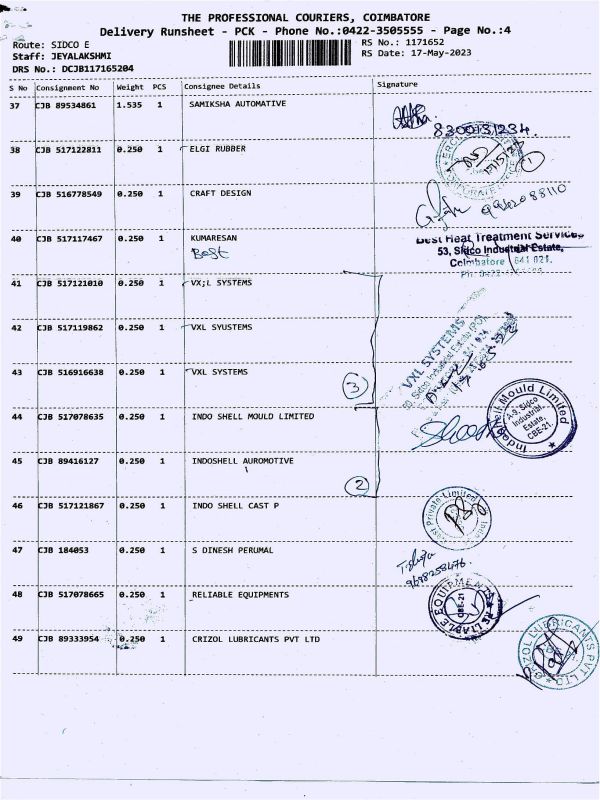 THE PROFESSIONAL COURIERS, COIMBATORE
Delivery Runsheet - PCK - Phone No.:0422-3505555 - Page No.:4
Route: SIDCO E
RS No.: 1171652
Staff: JEYALAKSHMI
RS Date: 17-May-2023
DRS No.: DCJB117165204
S No Consignment No Weight PCS Consignee Details Signature
37 CJB 89534861 1.535 1 SAMIKSHA AUTOMATIVE
8300131234.
38 CJB 517122811 0.250 1 ELGI RUBBER
1
39 CJB 516778549 0.250 1 CRAFT DESIGN
40 CJB 517117467 0.250 1 KUMARESAN
Best
Best Heat Treatment Services
53, Sidco Industrial Estate,
Coimbatore 641 021.
41 CJB 517121010 0.250 1 VX;L SYSTEMS
42 CJB 517119862 0.250 1 VXL SYUSTEMS
VXL SYSTEMS
43 CJB 516916638 0.250 1 VXL SYSTEMS
3
44 CJB 517078635 0.250 1 INDO SHELL MOULD LIMITED
IndoShell Mould Limited
A-9, Sidco
Industrial
Estate,
CBE-21.
45 CJB 89416127 0.250 1 INDOSHELL AUROMOTIVE
2
46 CJB 517121867 0.250 1 INDO SHELL CAST P
Cast Private Limited
47 CJB 184053 0.250 1 S DINESH PERUMAL
48 CJB 517078665 0.250 1 RELIABLE EQUIPMENTS
RELIABLE EQUIPMENTS
CBE-21
49 CJB 89333954 0.250 1 CRIZOL LUBRICANTS PVT LTD
CRIZOL LUBRICANTS PVT LTD